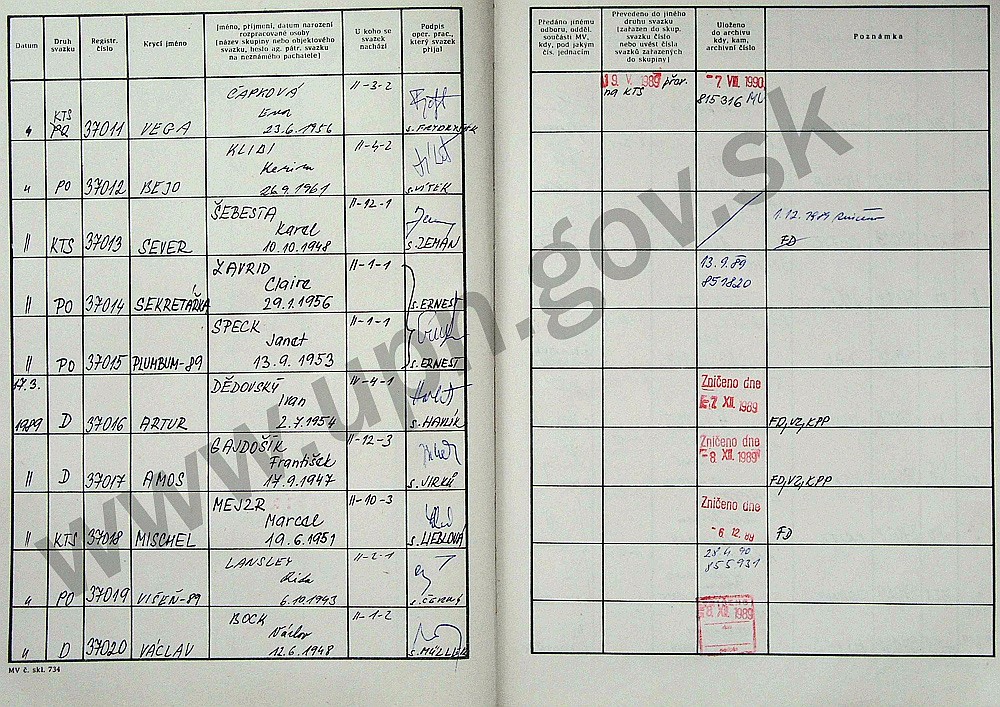 Datum
Druh svazku
Registr. číslo
Krycí jméno
Jméno, příjmení, datum narození rozpracované osoby
[název skupiny nebo objektového svazku, heslo ag. pátr. svazku na neznámého pachatele]
U koho se svazek nachází
Podpis oper. prac., který svazek přijal
Předáno jinému odboru, odděl. součásti MV, kdy, pod jakým čís. jednacím
Převedeno do jiného druhu svazku [zařazen do skup. svazku číslo nebo uvést čísla svazků zařazených do skupiny]
Uloženo do archivu kdy, kam, archivní číslo
Poznámka
" KTS PO 37011 VEGA ČAPKOVÁ II-3-2
23.6.1956 s. FRYDRYŠEK
19. V. 1989 přev. na KTS
-7. VIII. 1990
815316 MV
" PO 37012 BEJO KLIBI II-4-2
26.9.1961 s. VÍTEK
" KTS 37013 SEVER ŠEBESTA II-12-1
Karel
10.10.1948 s. ZEMAN
1.12.1989 zničeno
FD
" PO 37014 SEKRETÁŘKA ZAVRID II-1-1
Claire
29.1.1956 s. ERNEST
13.9.89
851820
" PO 37015 PLUMBUM-89 SPECK II-1-1
Janet
13.9.1953 s. ERNEST
17.3. 1989 D 37016 ARTUR DĚDOVSKÝ II-4-1
Ivan
2.7.1954 s. HAVLÍK
Zničeno dne
-7. XII. 1989
FD, VZ, KPP
" D 37017 AMOS GAJDOŠÍK II-12-3
František
17.9.1947 s. JIRKŮ
Zničeno dne
-8. XII. 1989
FD, VZ, KPP
" KTS 37018 MISCHEL MEJZR II-10-3
Marcel
19.6.1951 s. LIEBLOVÁ
Zničeno dne
-6 12. 89
FD
" PO 37019 VIŠEŇ-89 LANSLEY II-2-1
6.10.1943 s. ČERNÝ
28.4.90
855931
" D 37020 VÁCLAV BOCK II-1-2
Václav
12.6.1948 s. MÜLLER
8. XII. 1989
MV č. skl. 734
www.upn.gov.sk